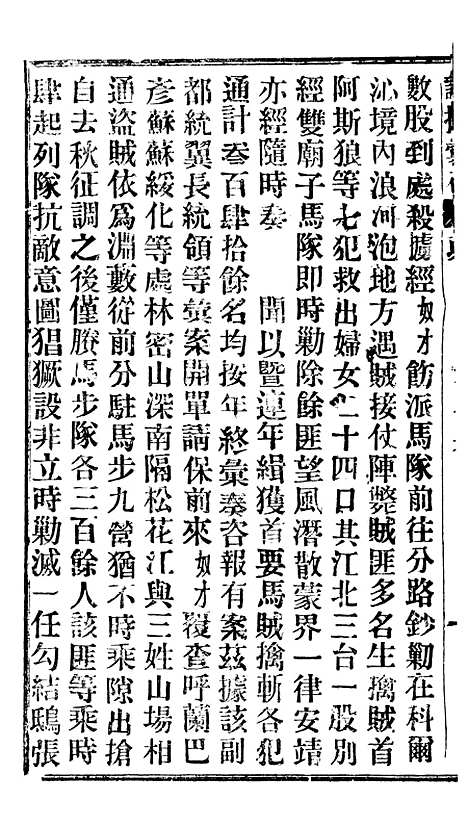 數股到處殺擄經奴才飭派馬隊前往分路鈔勦在科爾
沁境內浪河泡地方遇賊接仗陣斃賊匪多名生擒賊首
阿斯狼等七犯救出婦女二十四口其江北三台一股別
經雙廟子馬隊即時勦除餘匪望風潛散蒙界一律安靖
亦經隨時奏　　聞以暨連年緝獲首要馬賊擒斬各犯
通計叁百肆拾餘名均按年終彙奏咨報有案茲據該副
都統翼長統領等彙案開單請保前來奴才覆查呼蘭巴
彥蘇蘇綏化等處林密山深南隔松花江與三姓山場相
通盜賊依爲淵藪從前分駐馬步九營猶不時乘隙出搶
自去秋征調之後僅賸馬步隊各三百餘人該匪等乘時
肆起列隊抗敵意圖猖獗設非立時勦滅一任勾結鴟張